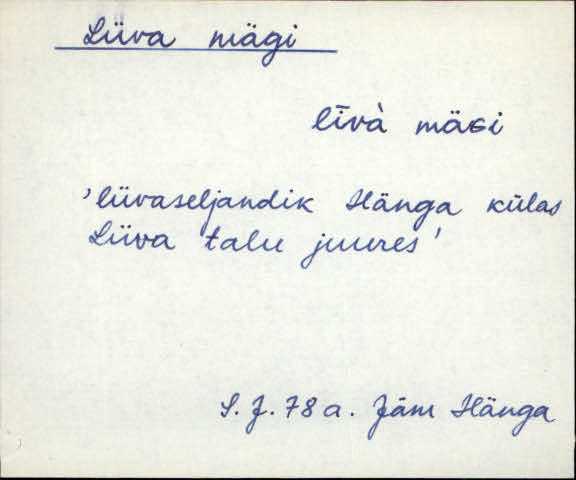 Liiva mägi
līvà mäɢi
'liivaseljandik Hänga külas
Liiva talu juures'
S. J. 78 a. Jäm Hänga